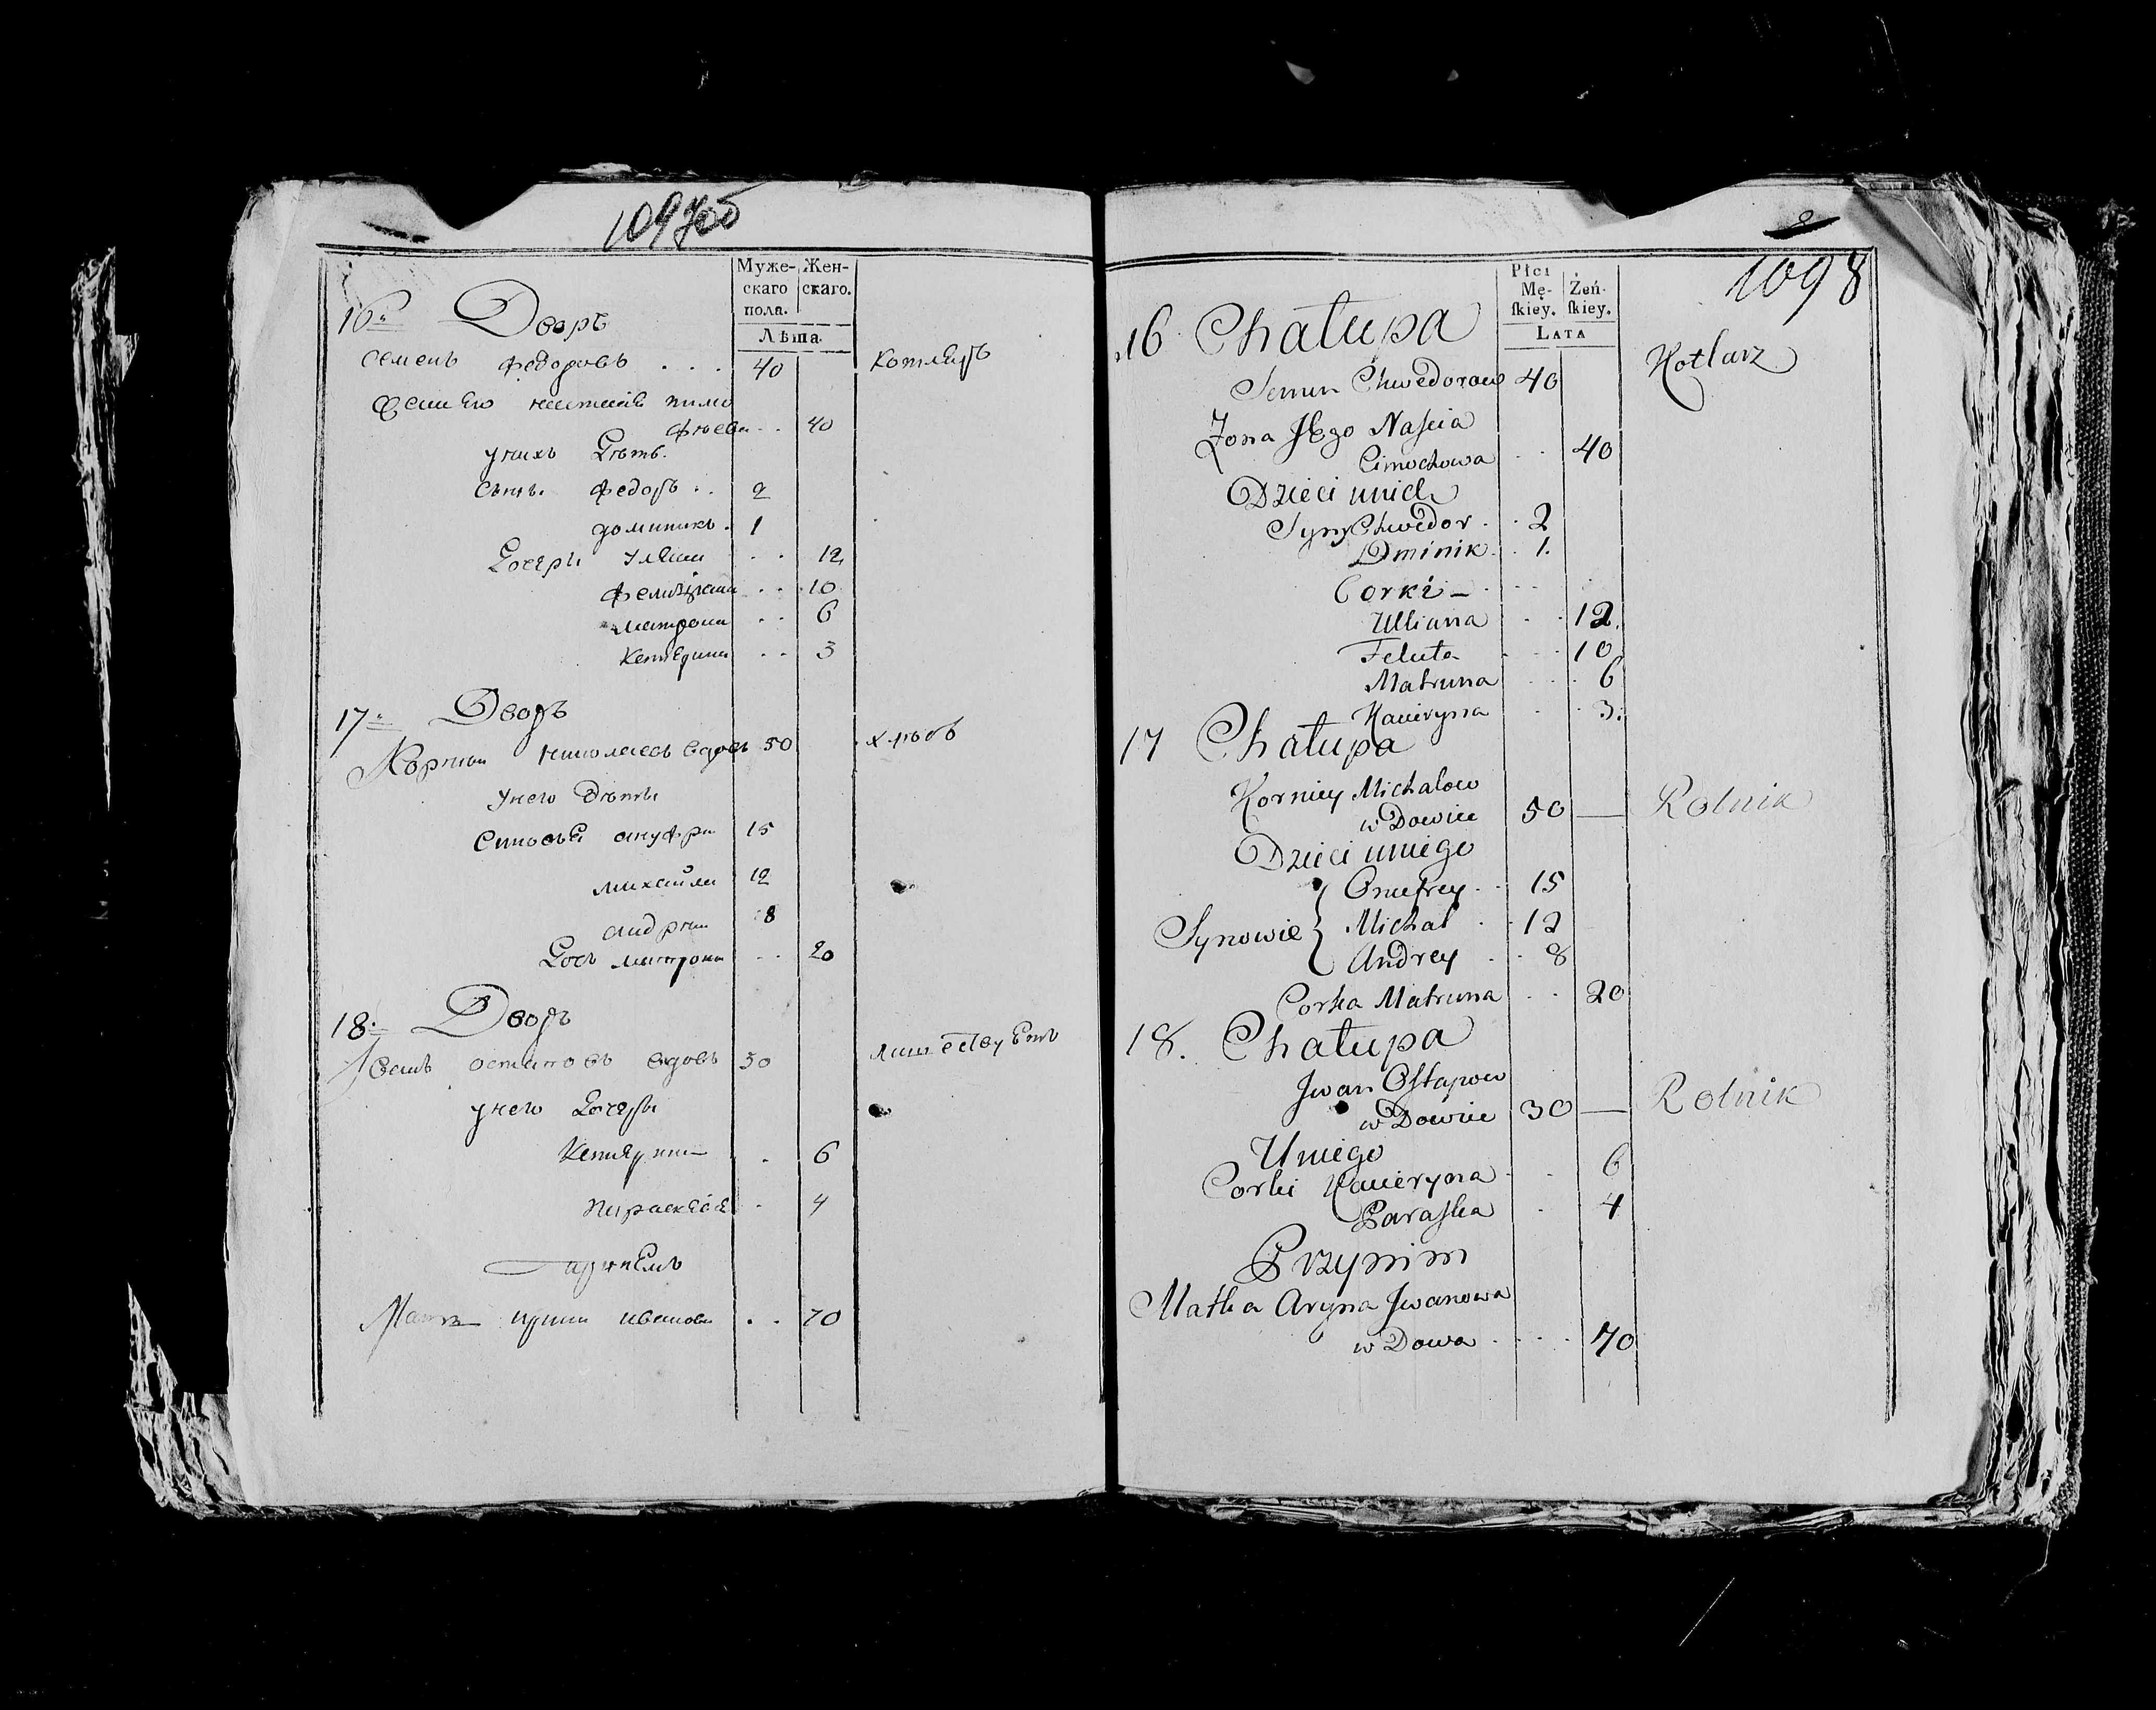 1097об
Муже-
скаго
пола.
Жен-
скаго.
Лѣта.
16. Дворъ
Семенъ Федоровъ . . . 40 Котляръ
Жена Его Настасія Тимо
фѣева . . 40
у нихъ Дѣти.
Сынъ. Федоръ . . 2
Доминикъ . 1
Дочери Уліана . . 12
. . 10
Матрона . . 6
Катерина . . 3
17. Дворъ
50
у него Дѣти
Сыновья Ануфри 15
Михайла 12
Андрей 8
Дочь Матрона . . 20
18. Дворъ
Иванъ Остаповъ вдовъ 30
у него Дочери
Катерина . 6
Параскевія . 4
Мать Ирина Иванова . . 70
1098
Płci
Mę-
skiey.
Żeń-
skiey.
LATA
16 Chałupa
Semen Chwedorow 40 Kotlarz
Zona Jego Nascia
Cimochowa . . 40
Dzieci unich
Syny Chwedor . . 2
Dminik . . 1.
Corki
Ulliana . . 12.
Feluta . . . 10
Matruna . . . 6
Kacieryna . . 3.
17 Chałupa
Korniey Michalow
wDowiec 50 — Rolnik
Dzieci uniego
Onufrey . . 15
Synowie { Michał . . 12
Andrey . . 8
Corka Matruna . . 20
18. Chałupa
Jwan Ostapow
wDowiec 30 — Rolnik
Uniego
Corki Kacieryna . . 6
Paraska . 4
Przynim
Matka Aryna Jwanowa
wDowa . . . . 70